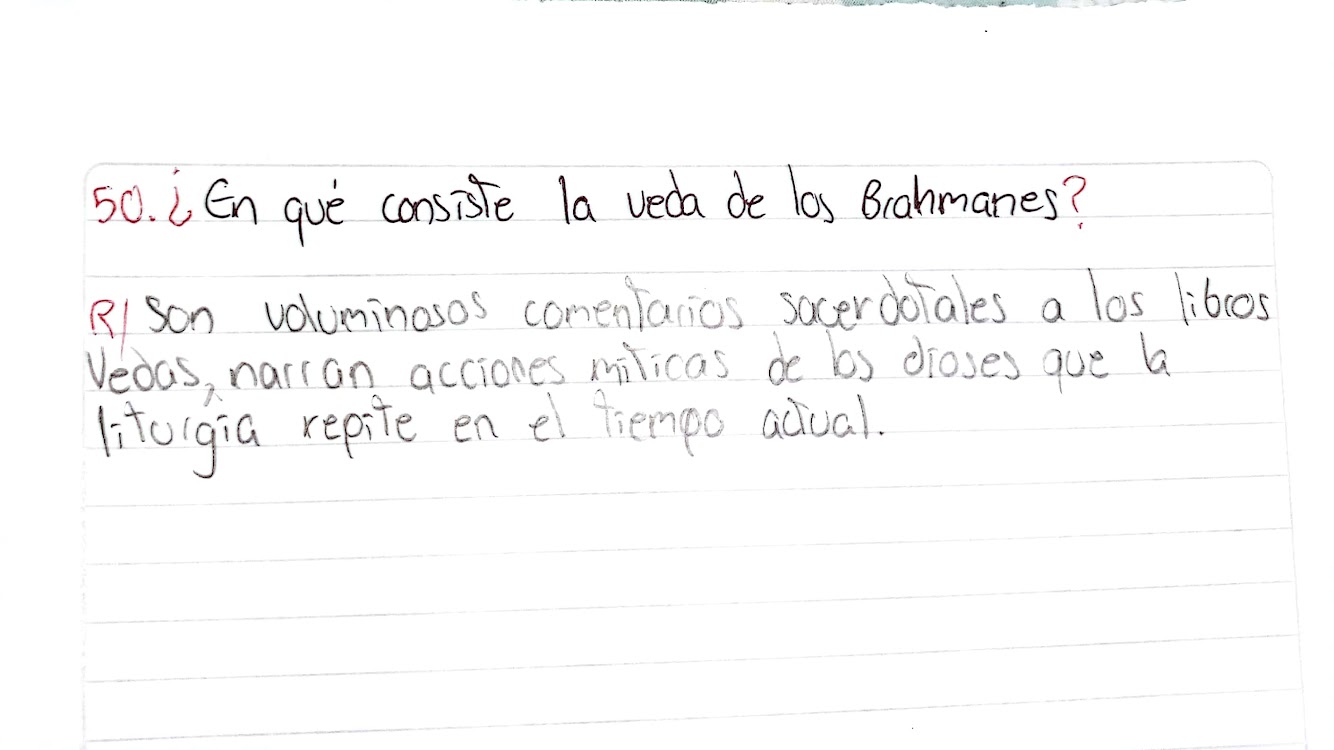 50. ¿En qué consiste la veda de los Brahmanes?
R/ Son voluminosos comentarios sacerdotales a los libros
Vedas, narran acciones míticas de los dioses que la
liturgia repite en el tiempo actual.